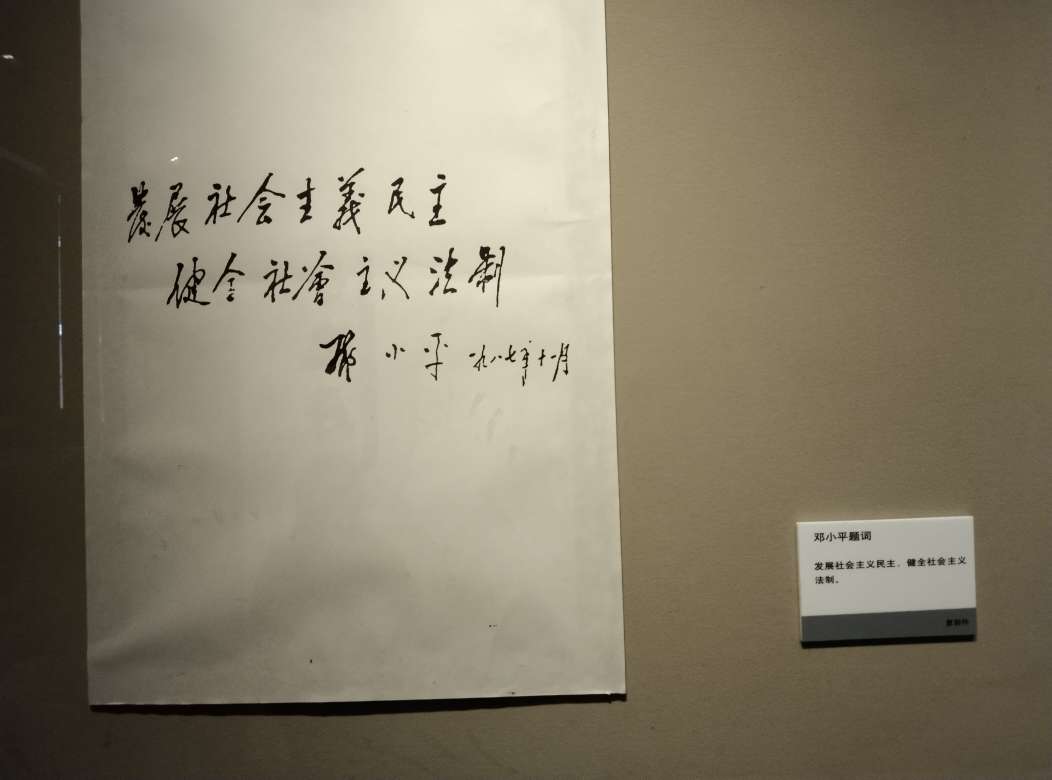 發展社会主義民主
健全社會主义法制
邓小平 一九八七年十一月
邓小平题词
发展社会主义民主，健全社会主义
法制。
复制件